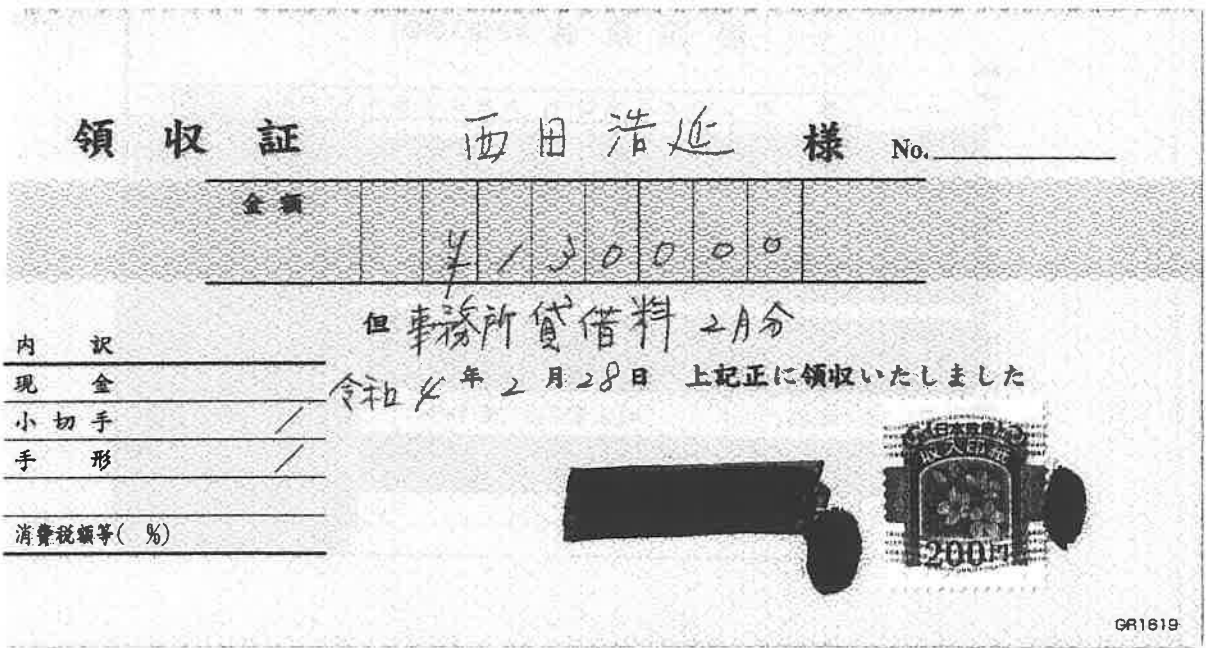 領収証 西田浩延 様 No.
金額
¥130000
但 事務所賃借料 2月分
内訳
現金
令和4年2月28日 上記正に領収いたしました
小切手 /
手形 /
消費税額等( %)
日本政府
収入印紙
200円
GR1619